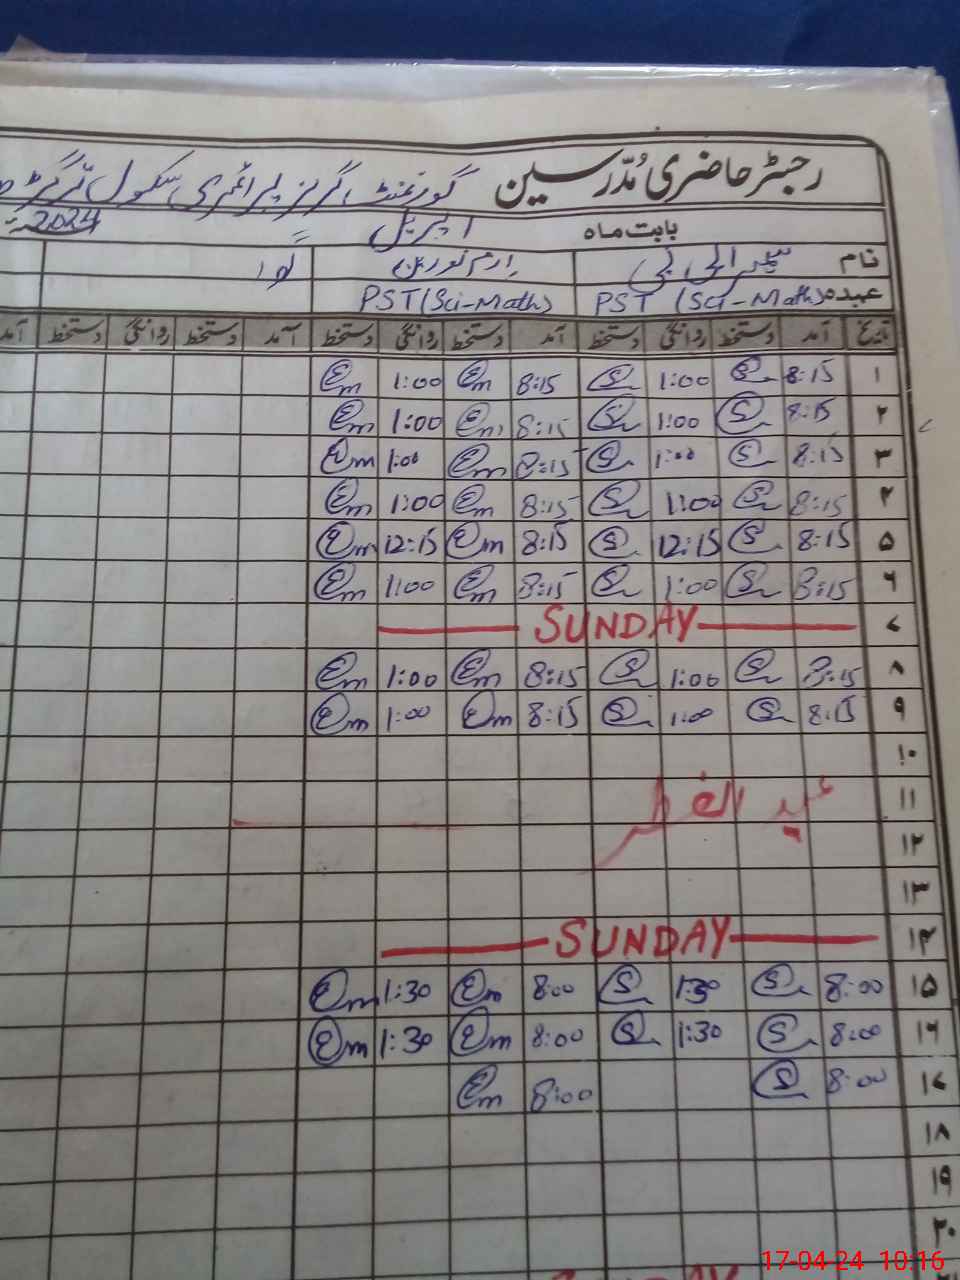 رجسٹر حاضری مُدّرسین گورنمنٹ گرلز پرائمری سکول
بابت ماہ اپریل 2024
نام ارم نورین
عہدہ PST (Sci-Math) PST (Sci-Math)
تاریخ آمد دستخط روانگی دستخط آمد دستخط روانگی دستخط آمد دستخط روانگی دستخط آمد
۱ 8:15 S 1:00 S 8:15 Em 1:00 Em
۲ 8:15 S 1:00 S 8:15 Em 1:00 Em
۳ 8:15 S 1:00 S 8:15 Em 1:00 Em
۴ 8:15 S 1:00 S 8:15 Em 1:00 Em
۵ 8:15 S 12:15 S 8:15 Em 12:15 Em
۶ 8:15 S 1:00 S 8:15 Em 1:00 Em
۷ SUNDAY
۸ 8:15 S 1:00 S 8:15 Em 1:00 Em
۹ 8:15 S 1:00 S 8:15 Em 1:00 Em
۱۰
۱۱ عید الفطر
۱۲
۱۳
۱۴ SUNDAY
۱۵ 8:00 S 1:30 S 8:00 Em 1:30 Em
۱۶ 8:00 S 1:30 S 8:00 Em 1:30 Em
۱۷ 8:00 S 8:00 Em
۱۸
۱۹
۲۰
17-04-24 10:16